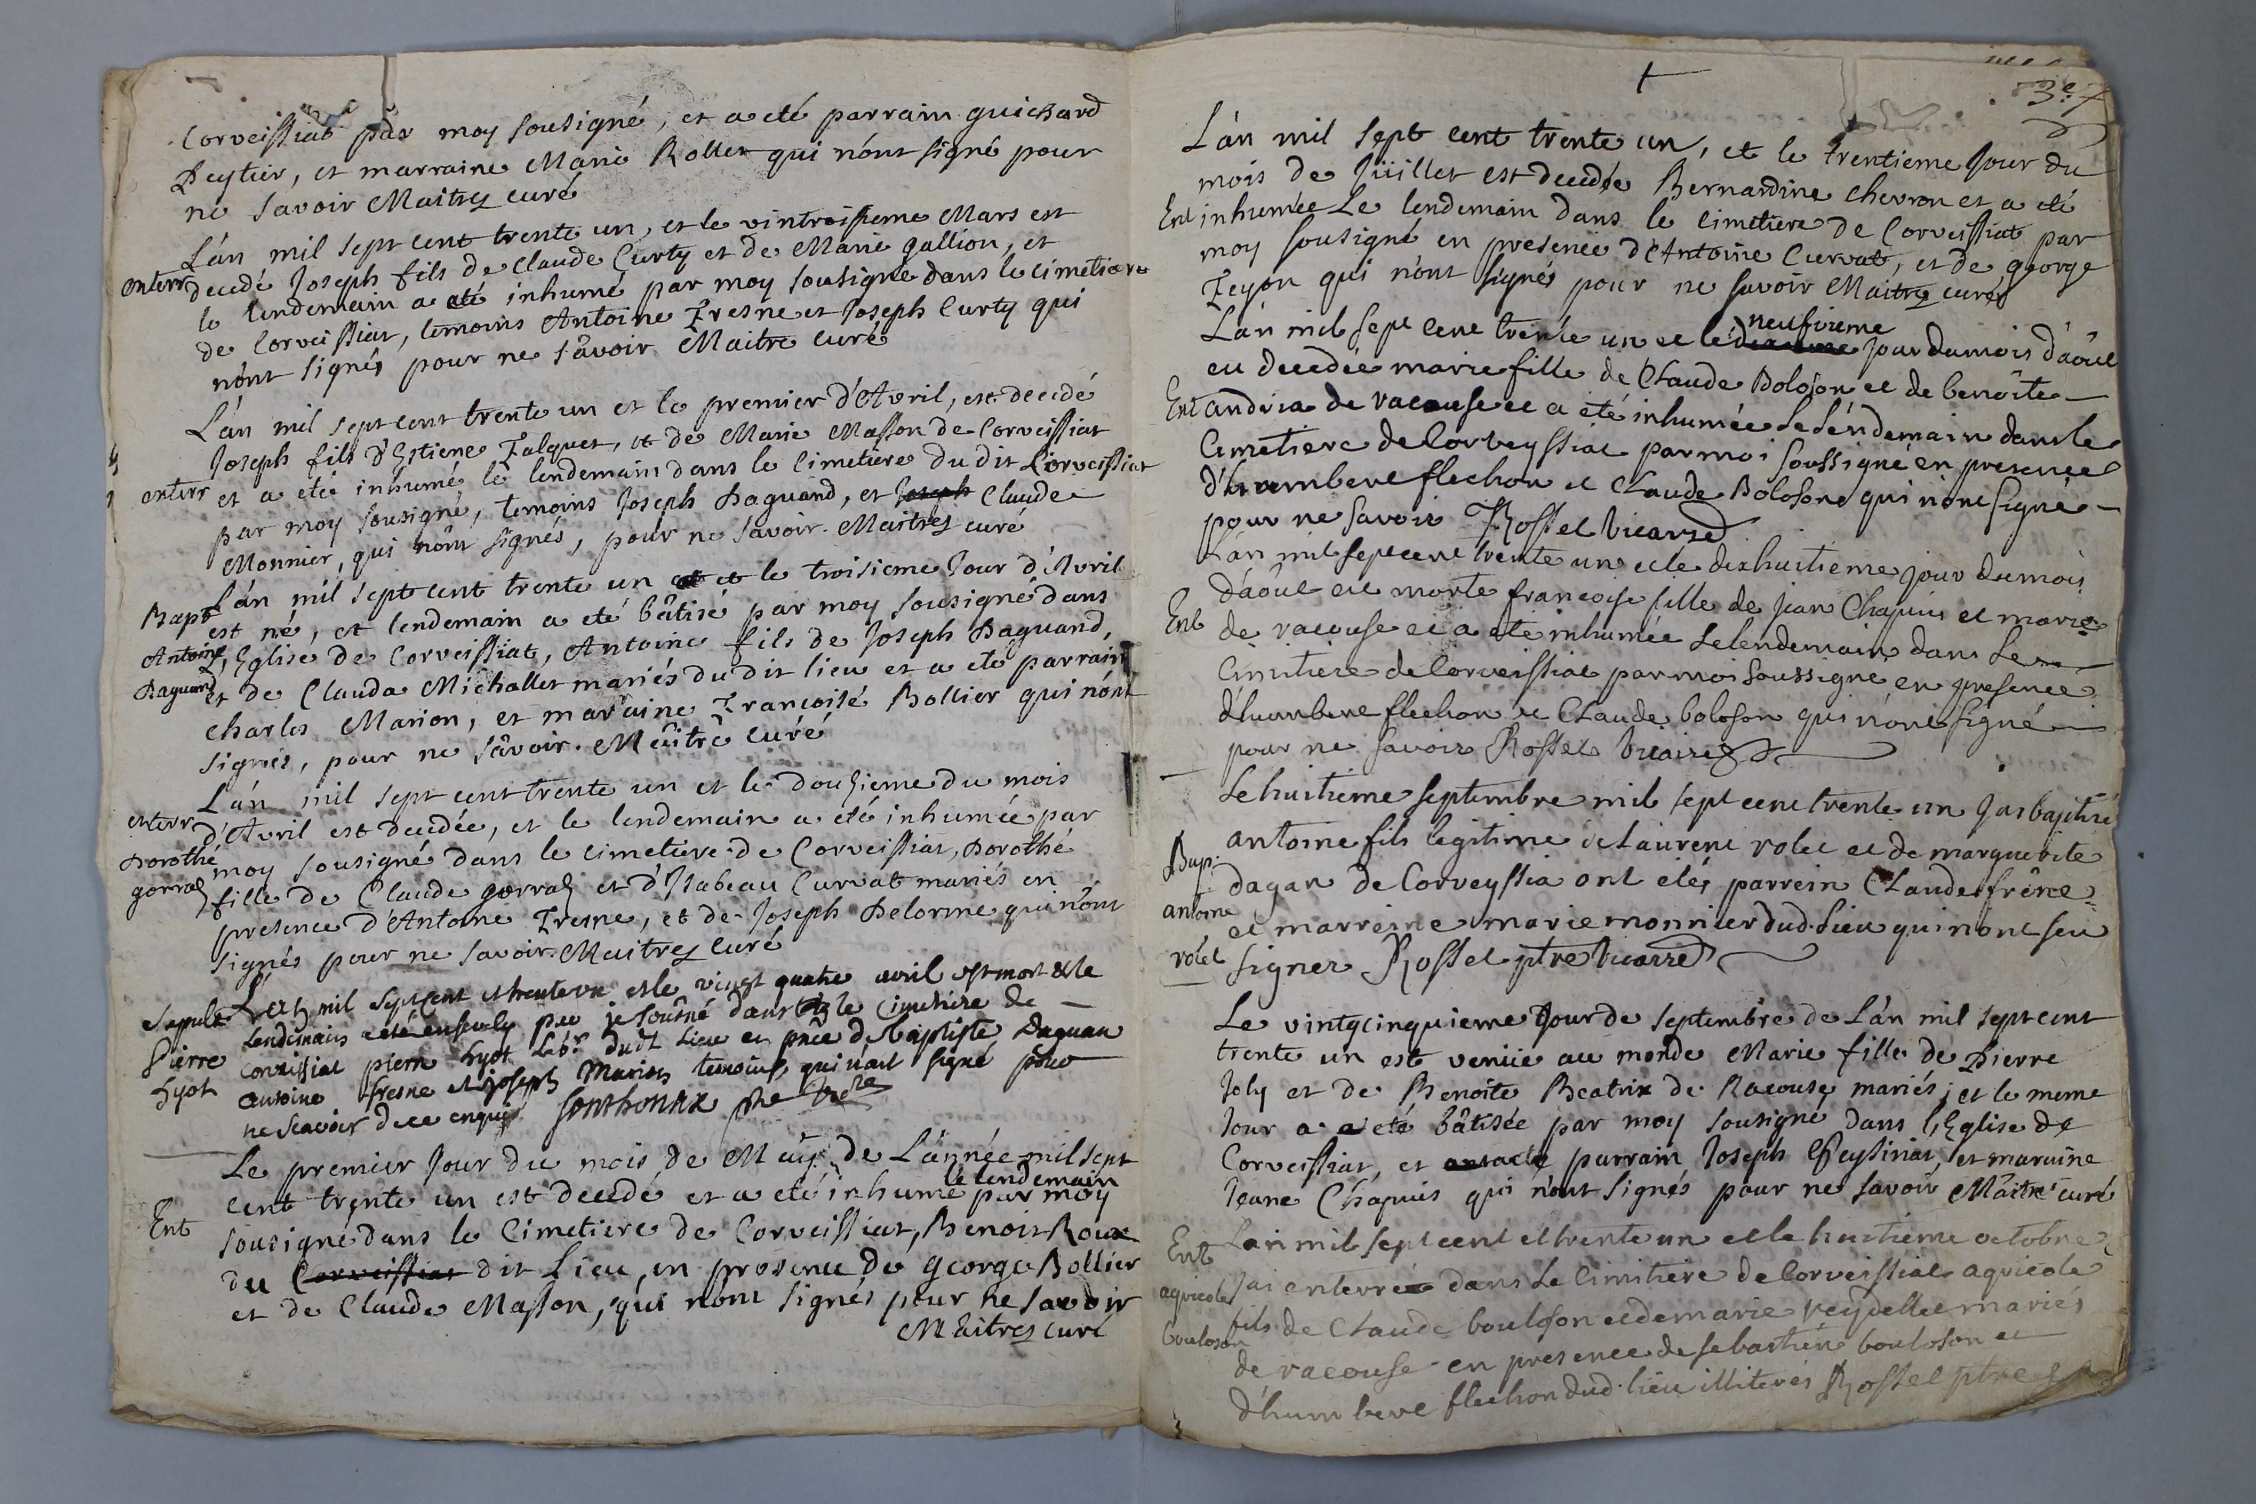 Corveissiat par moy sousigné, et a eté parrain guichard
Peytier, et marraine Marie Rollet qui n'ont signé pour
ne savoir Maitre curé
L'an mil sept cent trente un, et le vintroisieme Mars est
enterr decedé Joseph fils de Claude Curty et de Marie gallion, et
le lendemain a eté inhumé par moy sousigné dans le cimetiere
de Corveissiat, temoins Antoine Fresne et Joseph Curty qui
n'ont signés pour ne sâvoir Maitre curé
L'an mil sept cent trente un et le premier d'Avril, est decedé
Joseph fils d'Estiene Falquet, et de Marie Masson de Corveissiat
enterr et a eté inhumé le lendemain dans le cimetiere du dit Corveissiat
par moy sousigné, temoins Joseph Daguand, et Joseph Claude
Monnier, qui n'ont signés, pour ne savoir. Maitre curé
L'an mil sept cent trente un et et le troisieme Jour d'Avril
Bapt est né, et lendemain a eté bâtisé par moy sousigné dans
Antoine L'Eglise de Corveissiat, Antoine fils de Joseph Daguand,
Daguand et de Clauda Michallet mariés du dit lieu et a eté parrain
Charles Marion, et maraine Francoise Bollier qui n'ont
signés, pour ne sâvoir. Maître curé
L'an mil sept cent trente un et le douzieme du mois
enterr d'Avril est decedée, et le lendemain a été inhumée par
Dorothé moy sousigné dans le cimetiere de Corveissiat, Dorothé
gorraz fille de Claude gorraz et d'Isabeau Curvat mariés en
presence d'Antoine Fresne, et de Joseph Delorme qui n'ont
signés pour ne savoir. Maitre curé
Sepult L'an mil sept cent et trente un et le vingt quatre avril est mort et le
lendemain a eté ensevely par je sousné dans le cimetiere de
Pierre Corveissiat pierre hyot labr dudt lieu en pnce de baptiste Daguan
hyot antoine fresne et joseph Marion temoins qui n'ont signé pour
ne scavoir de ce enquis Sonthonax ptre
Le premier Jour du mois de May de L'année mil sept
le lendemain
cent trente un est decedé et a eté inhumé par moy
Ent sousigné dans le Cimetiere de Corveissiat, Benoit Roux
du Corveissiat dit Lieu, en presence de George Bollier
et de Claude Masson, qui n'ont signés pour ne savoir
Maitre curé
3e 7
L'an mil sept cent trente un, et le trentieme Jour du
mois de Juillet est decedée Bernardine Chevron et a eté
Ent inhumée Le lendemain dans le cimetiere de Corveissiat par
moy sousigné en presence d'Antoine Curvat, et de george
Feyon qui n'ont signés pour ne savoir Maitre curé
neufieme
L'an mil sept cent trente un et le jour du mois d'aôut
est decedée marie fille de Claude Boloson et de benoîte
Ent andrea de racouse et a eté inhumée le lendemain dans le
Cimetiere de Corveyssiat par moi soussigné en presence
d'humbert flechon et Claude Boloson qui n'ont signé
pour ne savoir Rossel vicaire
L'an mil sept cent trente un et le dixhuitieme jour du mois
d'aôut est morte francoise fille de jean Chapuis et marie
Ent de racouse et a eté inhumée le lendemain dans le
Cimitiere de Corveissiat par moi soussigné en presence
d'humbert flechon et Claude boloson qui n'ont signé
pour ne savoir Rossel vicaire
Le huitieme septembre mil sept cent trente un J'ai baptisé
antoine fils legitime de laurent rolet et de marguerite
Bapt dagan de Corveyssia ont etés parrein Claude frêne
antoine et marreine marie monnier dud. lieu qui n'ont seu
rolet signer Rossel ptre vicaire
Le vintgcinquieme Jour de septembre de L'an mil sept cent
trente un est venüe au monde Marie fille de Pierre
Joly et de Benoite Beatrix de Racouse mariés; et le meme
Jour a eté bâtisée par moy sousigné dans L'Eglise de
Corveissiat, et parrain Joseph Peysiriat, et maraine
Jeane Chapuis qui n'ont signés pour ne savoir Maître curé
Ent L'an mil sept cent et trente un et le huitieme octobre
agricole J'ai enterré dans le Cimitiere de Corveissiat agricole
bouloson fils de Claude bouloson et de marie reydellet mariés
de racouse en presence de sebastien bouloson et
d'humbert flechon dud. lieu illiterés Rossel ptre